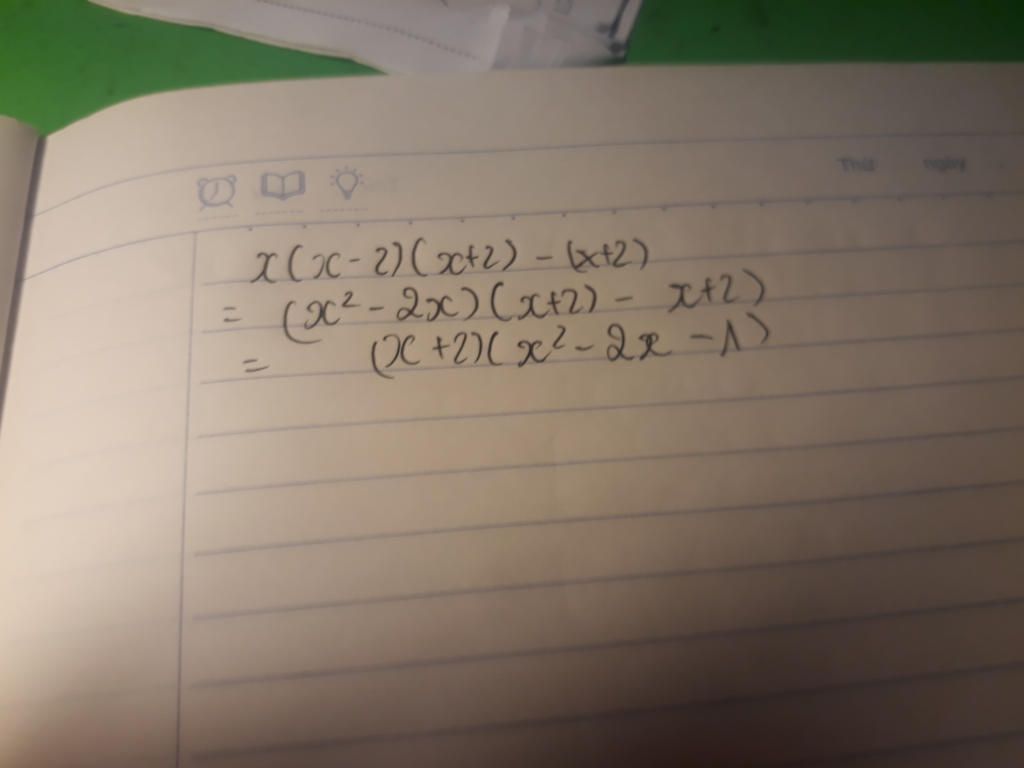 Thứ ngày
x(x-2)(x+2) - (x+2)
= (x² - 2x)(x+2) - x+2)
= (x+2)(x² - 2x - 1)